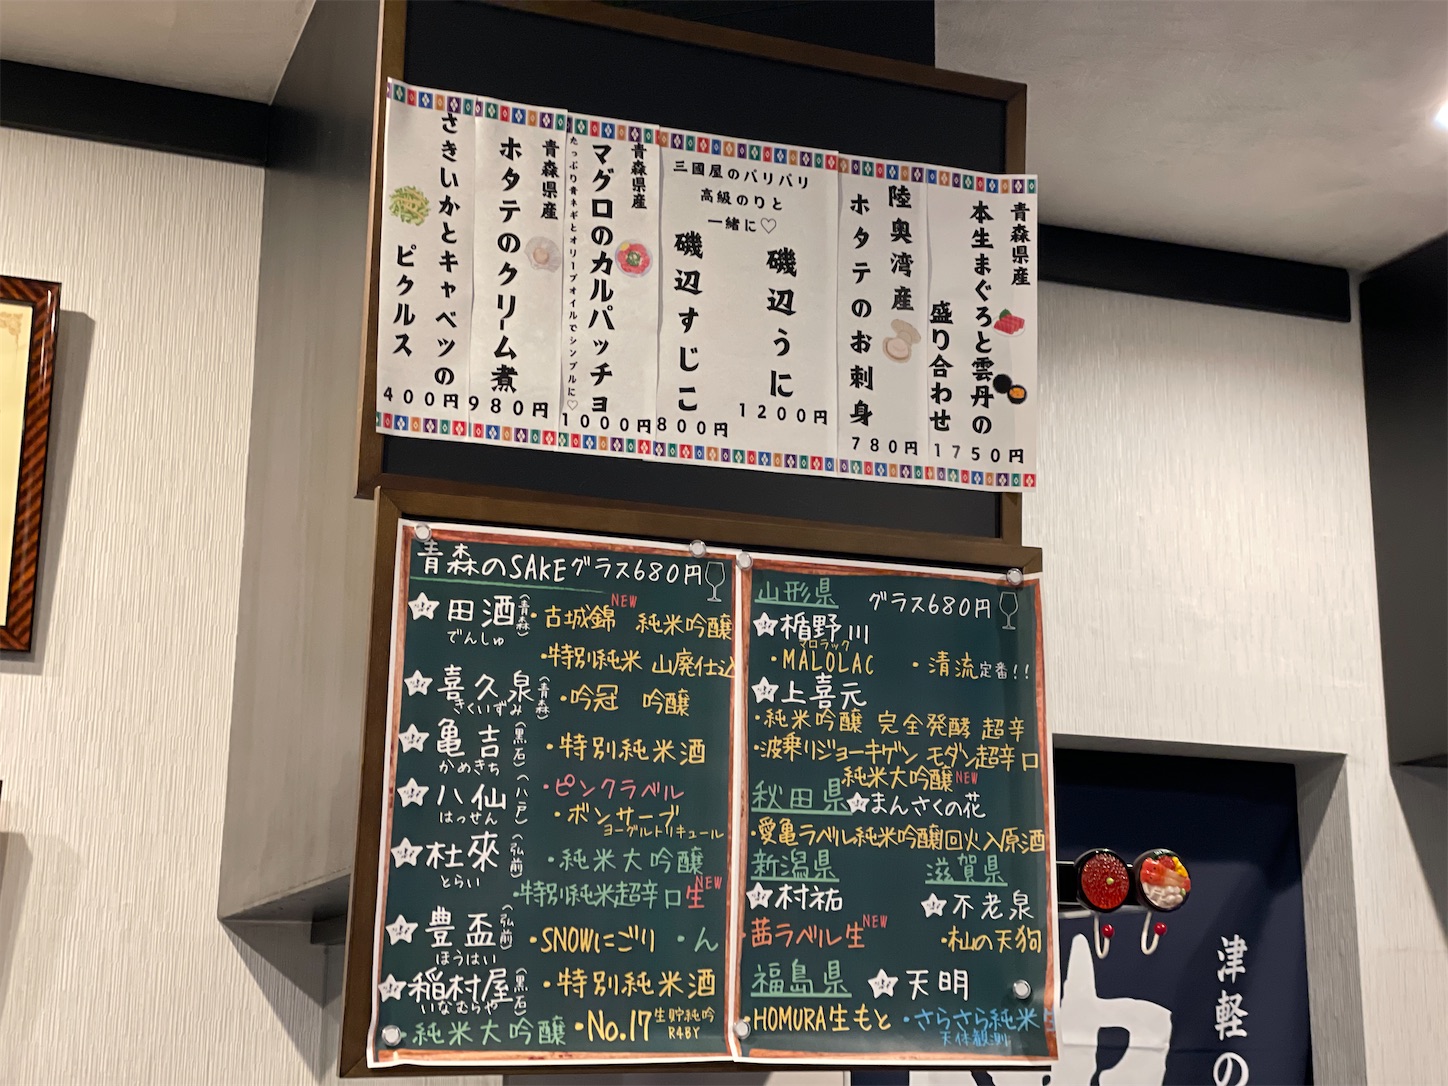 青森県産
本生まぐろと雲丹の
盛り合わせ
1750円
陸奥湾産
ホタテのお刺身
780円
三國屋のバリバリ
高級のりと
一緒に♡
磯辺うに
1200円
磯辺すじこ
800円
青森県産
マグロのカルパッチョ
たっぷり青ネギとオリーブオイルでシンプルに♡
1000円
青森県産
ホタテのクリーム煮
980円
さきいかとキャベツの
ピクルス
400円
青森のSAKEグラス680円
田酒(青森)
でんしゅ
・古城錦 純米吟醸
NEW
・特別純米 山廃仕込
喜久泉(青森)
きくいずみ
・吟冠 吟醸
亀吉(黒石)
かめきち
・特別純米酒
八仙(八戸)
はっせん
・ピンクラベル
・ボンサーブ
ヨーグルトリキュール
杜來(弘前)
とらい
・純米大吟醸
・特別純米超辛口生
NEW
豊盃(弘前)
ほうはい
・SNOWにごり ・ん
稲村屋(黒石)
いなむらや
・特別純米酒
・純米大吟醸
・No.17 生貯純吟
R4BY
山形県 グラス680円
楯野川
マロラック
・MALOLAC ・清流 定番!!
上喜元
・純米吟醸 完全発酵 超辛
・波乗りジョーキゲン モダン超辛口
純米大吟醸 NEW
秋田県 まんさくの花
・愛亀ラベル純米吟醸回火入原酒
新潟県
村祐
・茜ラベル生 NEW
滋賀県
不老泉
・杣の天狗
福島県 天明
・HOMURA生もと
・さらさら純米生
天体観測
津軽の